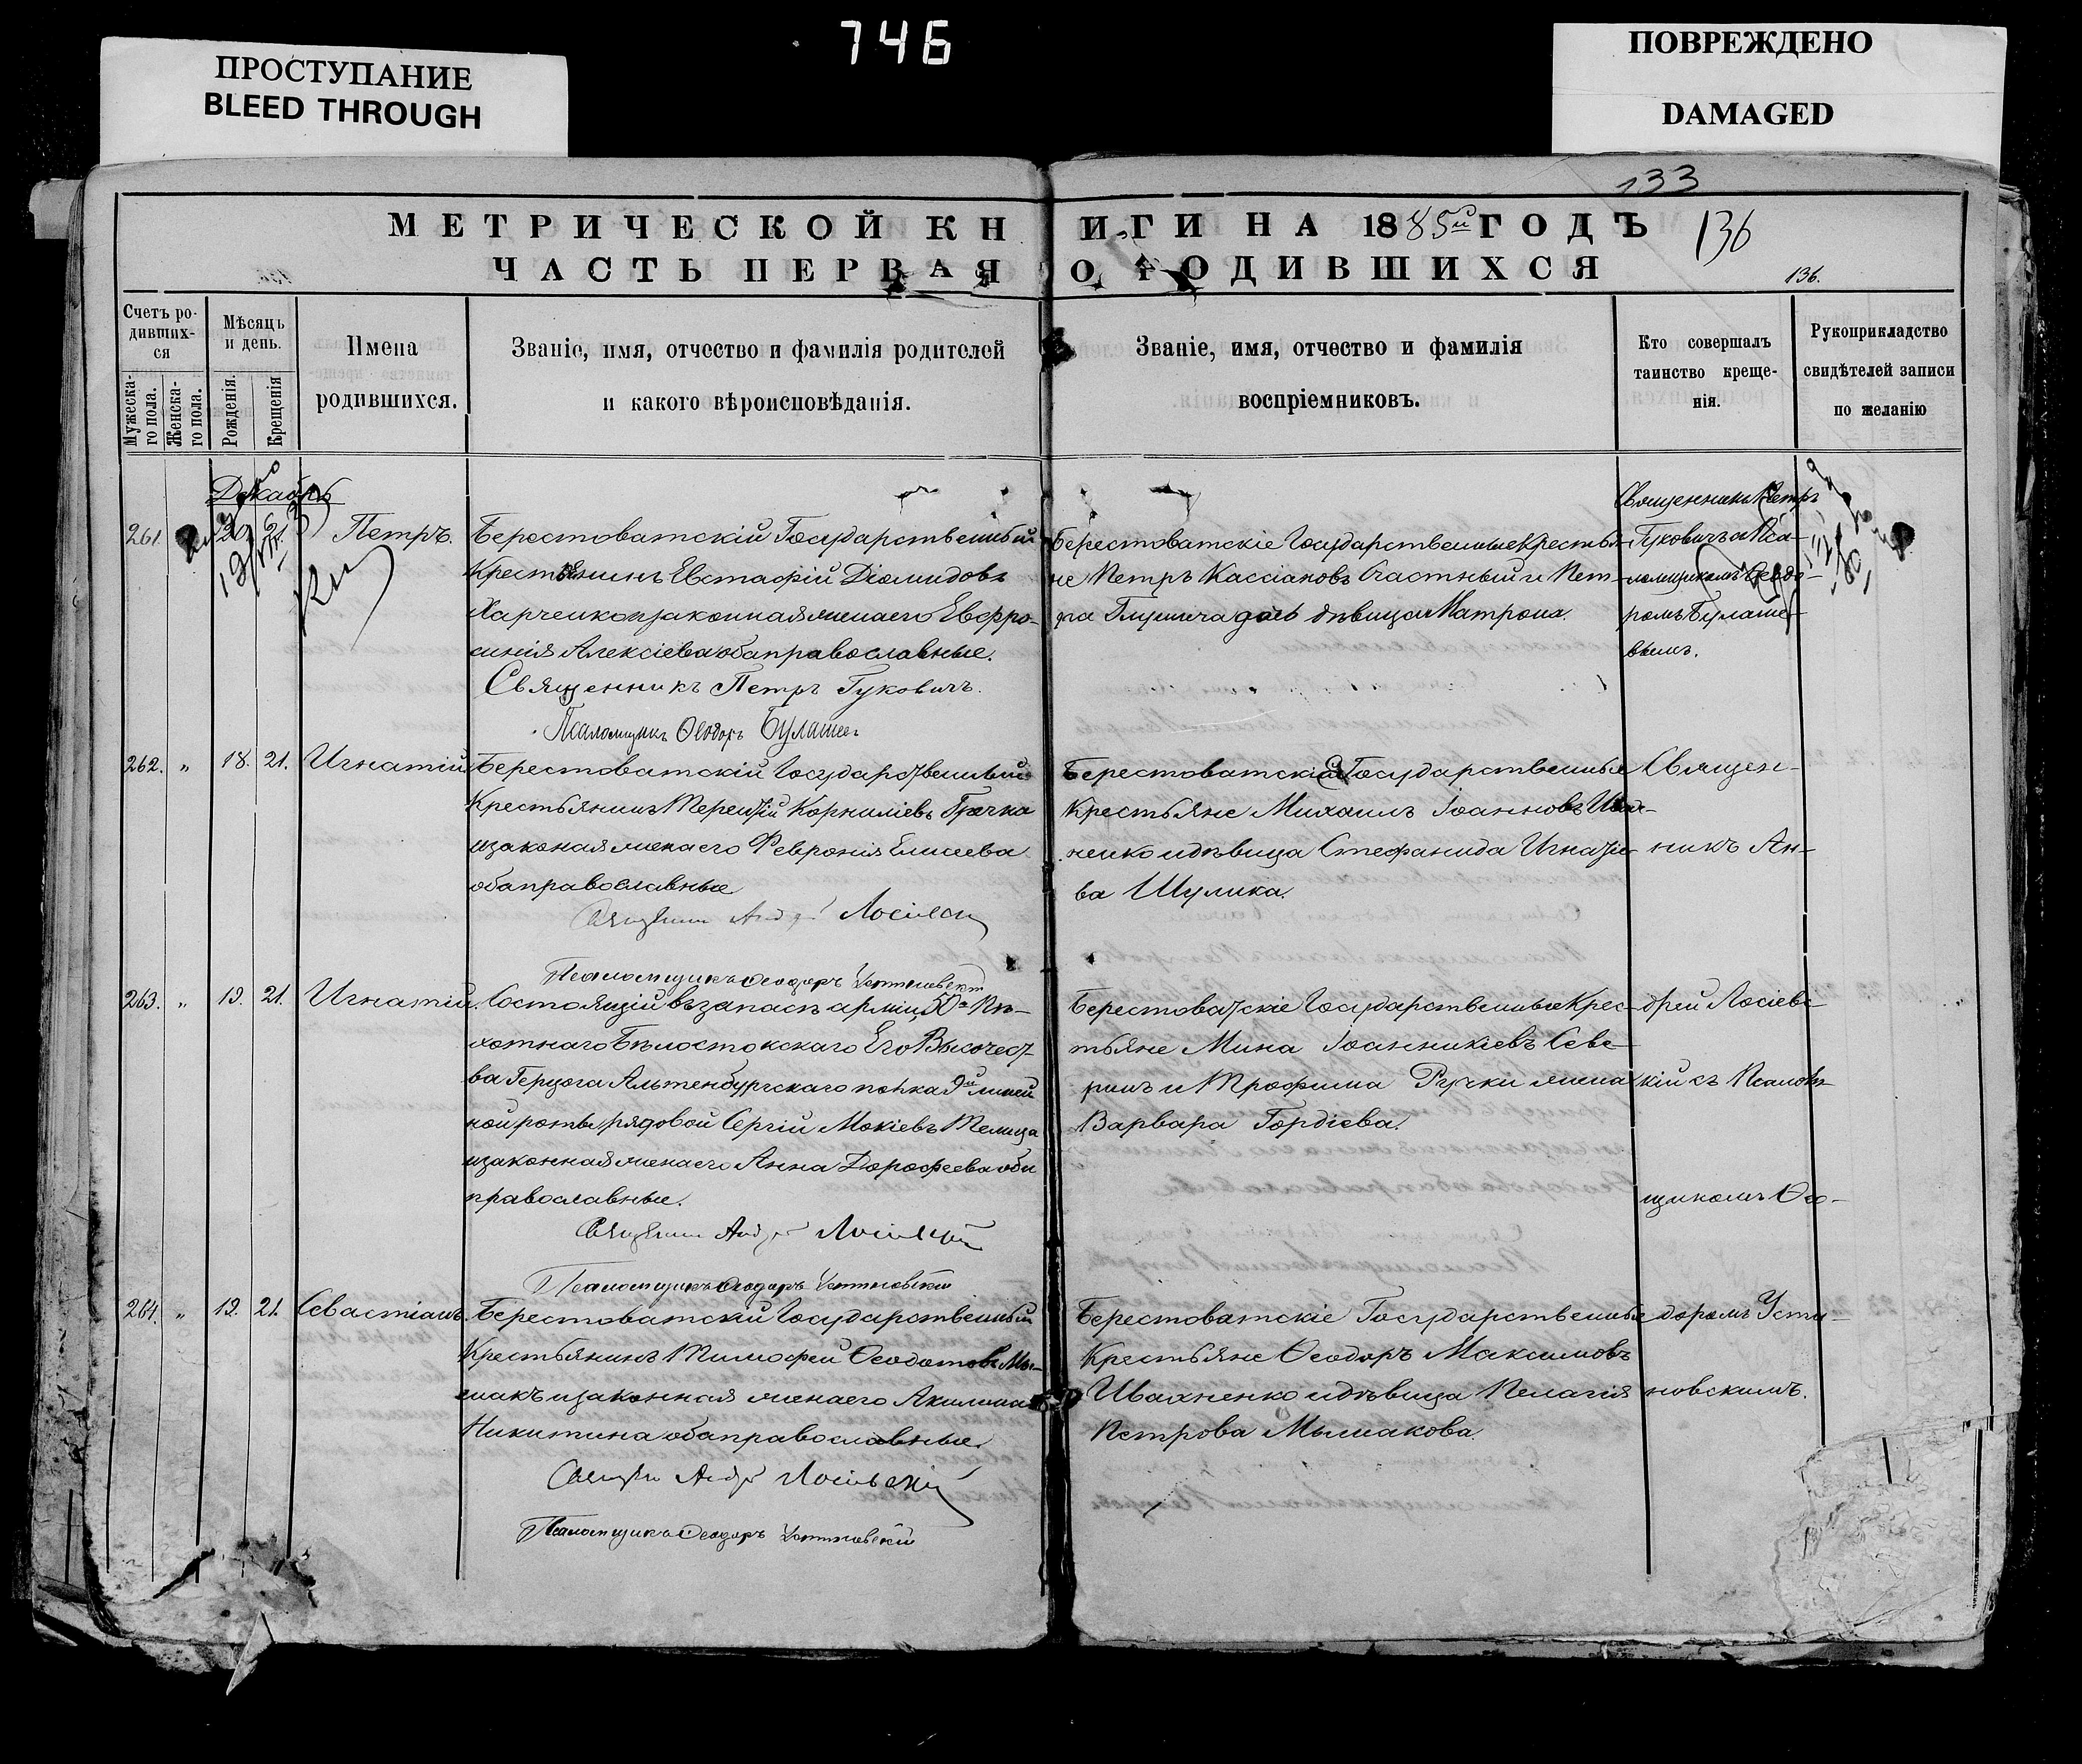 746
ПРОСТУПАНИЕ
BLEED THROUGH
ПОВРЕЖДЕНО
DAMAGED
133
МЕТРИЧЕСКОЙ КНИГИ НА 1885й ГОДЪ
136
ЧАСТЬ ПЕРВАЯ О РОДИВШИХСЯ
136.
Счетъ ро-
дивших-
ся
Мужеска-
го пола.
Женска-
го пола.
Мѣсяцъ
и день.
Рожденія.
Крещенія
Имена
родившихся.
Званіе, имя, отчество и фамилія родителей
и какого вѣроисповѣданія.
Званіе, имя, отчество и фамилія
воспріемниковъ.
Кто совершалъ
таинство креще-
нія.
Рукоприкладство
свидѣтелей записи
по желанію
Декабрь
261
20
21
Петръ.
Берестоватскій Государственный
Крестьянинъ Евстафій Діомидовъ
Харченко и законная жена его Евфро-
синія Алексіева оба православные.
Священникъ Петръ Гуковичъ.
Псаломщикъ Ѳеодоръ Булашев
Берестоватскіе Государственные Крестья-
не Петръ Кассіановъ Счастный и Пет-
ра дочь дѣвица Матрона.
Священникъ Петръ
Гуковичъ съ Пса-
ломщикомъ Ѳеодо-
ромъ Булаше-
вымъ.
262. „ 18. 21. Игнатій
Берестоватскій Государственный
Крестьянинъ Терентій Корниліевъ Гречка
и законая жена его Февронія Елисеева
оба православные
Лосіевскій
Псаломщикъ Ѳеодоръ Устиновскій
Берестоватскіе Государственные
Крестьяне Михаилъ Іоанновъ Ивах-
ненко и дѣвица Стефанида Игнатіе-
ва Шулика.
Священ-
никъ Ан-
263. „ 19. 21. Игнатій.
Состоящій въ запасѣ арміи, 50го Пѣ-
хотнаго Бѣлостокскаго Его Высочест-
ва Герцога Альтенбургскаго полка 9й линей
ной роты рядовой Сергій Мокіевъ Телица
и законная жена его Анна Дорофеева оба
православные.
Священник Андрей Лосіевскій
Псаломщикъ Ѳеодоръ Устиновскій
Берестоватскіе Государственные Крес-
тьяне Мина Іоанникіевъ Севе-
ринъ и Трофима Ручки жена
Варвара Гордіева.
дрей Лосіевс-
кій съ Псаломъ-
щикомъ Ѳео-
264. „ 19. 21. Севастіанъ.
Берестоватскій Государственный
Крестьянинъ Тимофей Ѳеодотовъ Мы-
шакъ и законная жена его Акилина
Никитина оба православные.
Андрей Лосіевскій
Псаломщикъ Ѳеодоръ Устиновскій
Берестоватскіе Государственные
Крестьяне Ѳеодоръ Максимовъ
Ивахненко и дѣвица Пелагія
Петрова Мышакова.
доромъ Усти-
новскимъ.